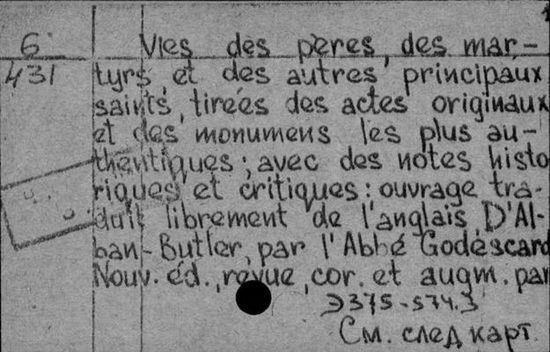 6
431
Vies des pères, des mar-
tyrs, et des autres principaux
saints, tirées des actes originaux
et des monumens les plus au-
thentiques; avec des notes histo
riques et critiques: ouvrage tra-
duit librement de l'anglais D'Al-
ban-Butler, par l'Abbé Godescard
Nouv. éd., revue, cor. et augm. par
Э375-574.3
См. след карт.